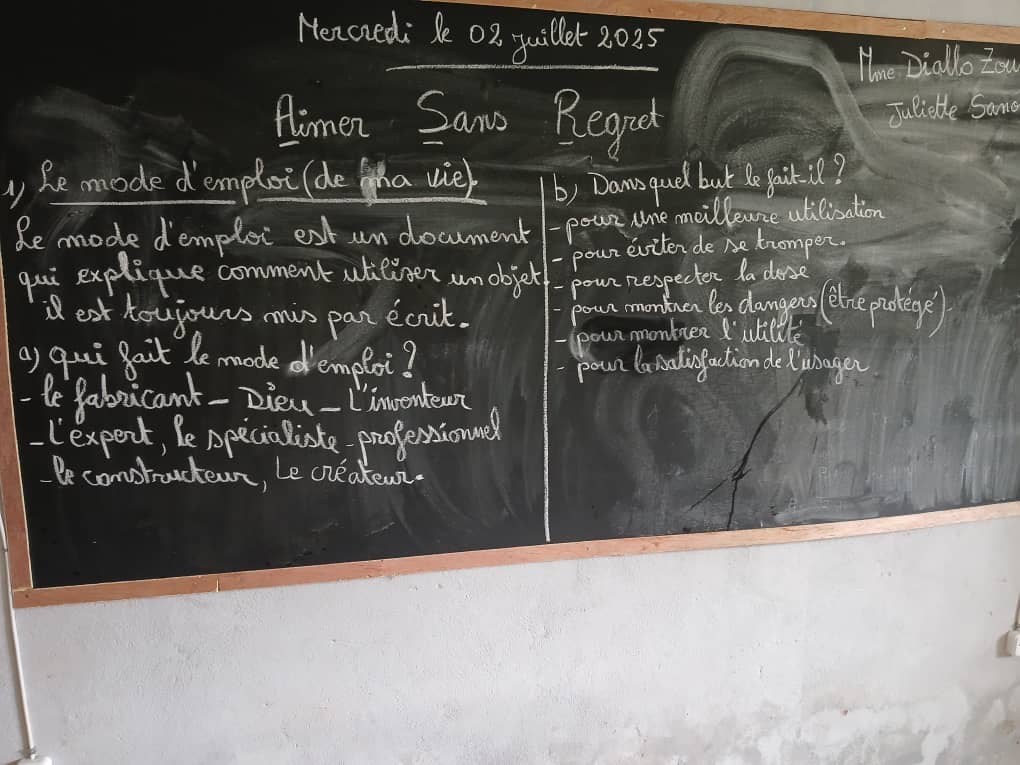 Mercredi le 02 juillet 2025
Mme Diallo Zou
Juliette Sano
Aimer Sans Regret
1) Le mode d'emploi (de ma vie).
Le mode d'emploi est un document
qui explique comment utiliser un objet.
il est toujours mis par écrit.
a) qui fait le mode d'emploi ?
- le fabricant - Dieu - L'inventeur
- L'expert, le spécialiste - professionnel
- le constructeur, Le créateur.
b) Dans quel but le fait-il ?
- pour une meilleure utilisation
- pour éviter de se tromper.
- pour respecter la dose
- pour montrer les dangers (être protégé)
- pour montrer l'utilité
- pour la satisfaction de l'usager